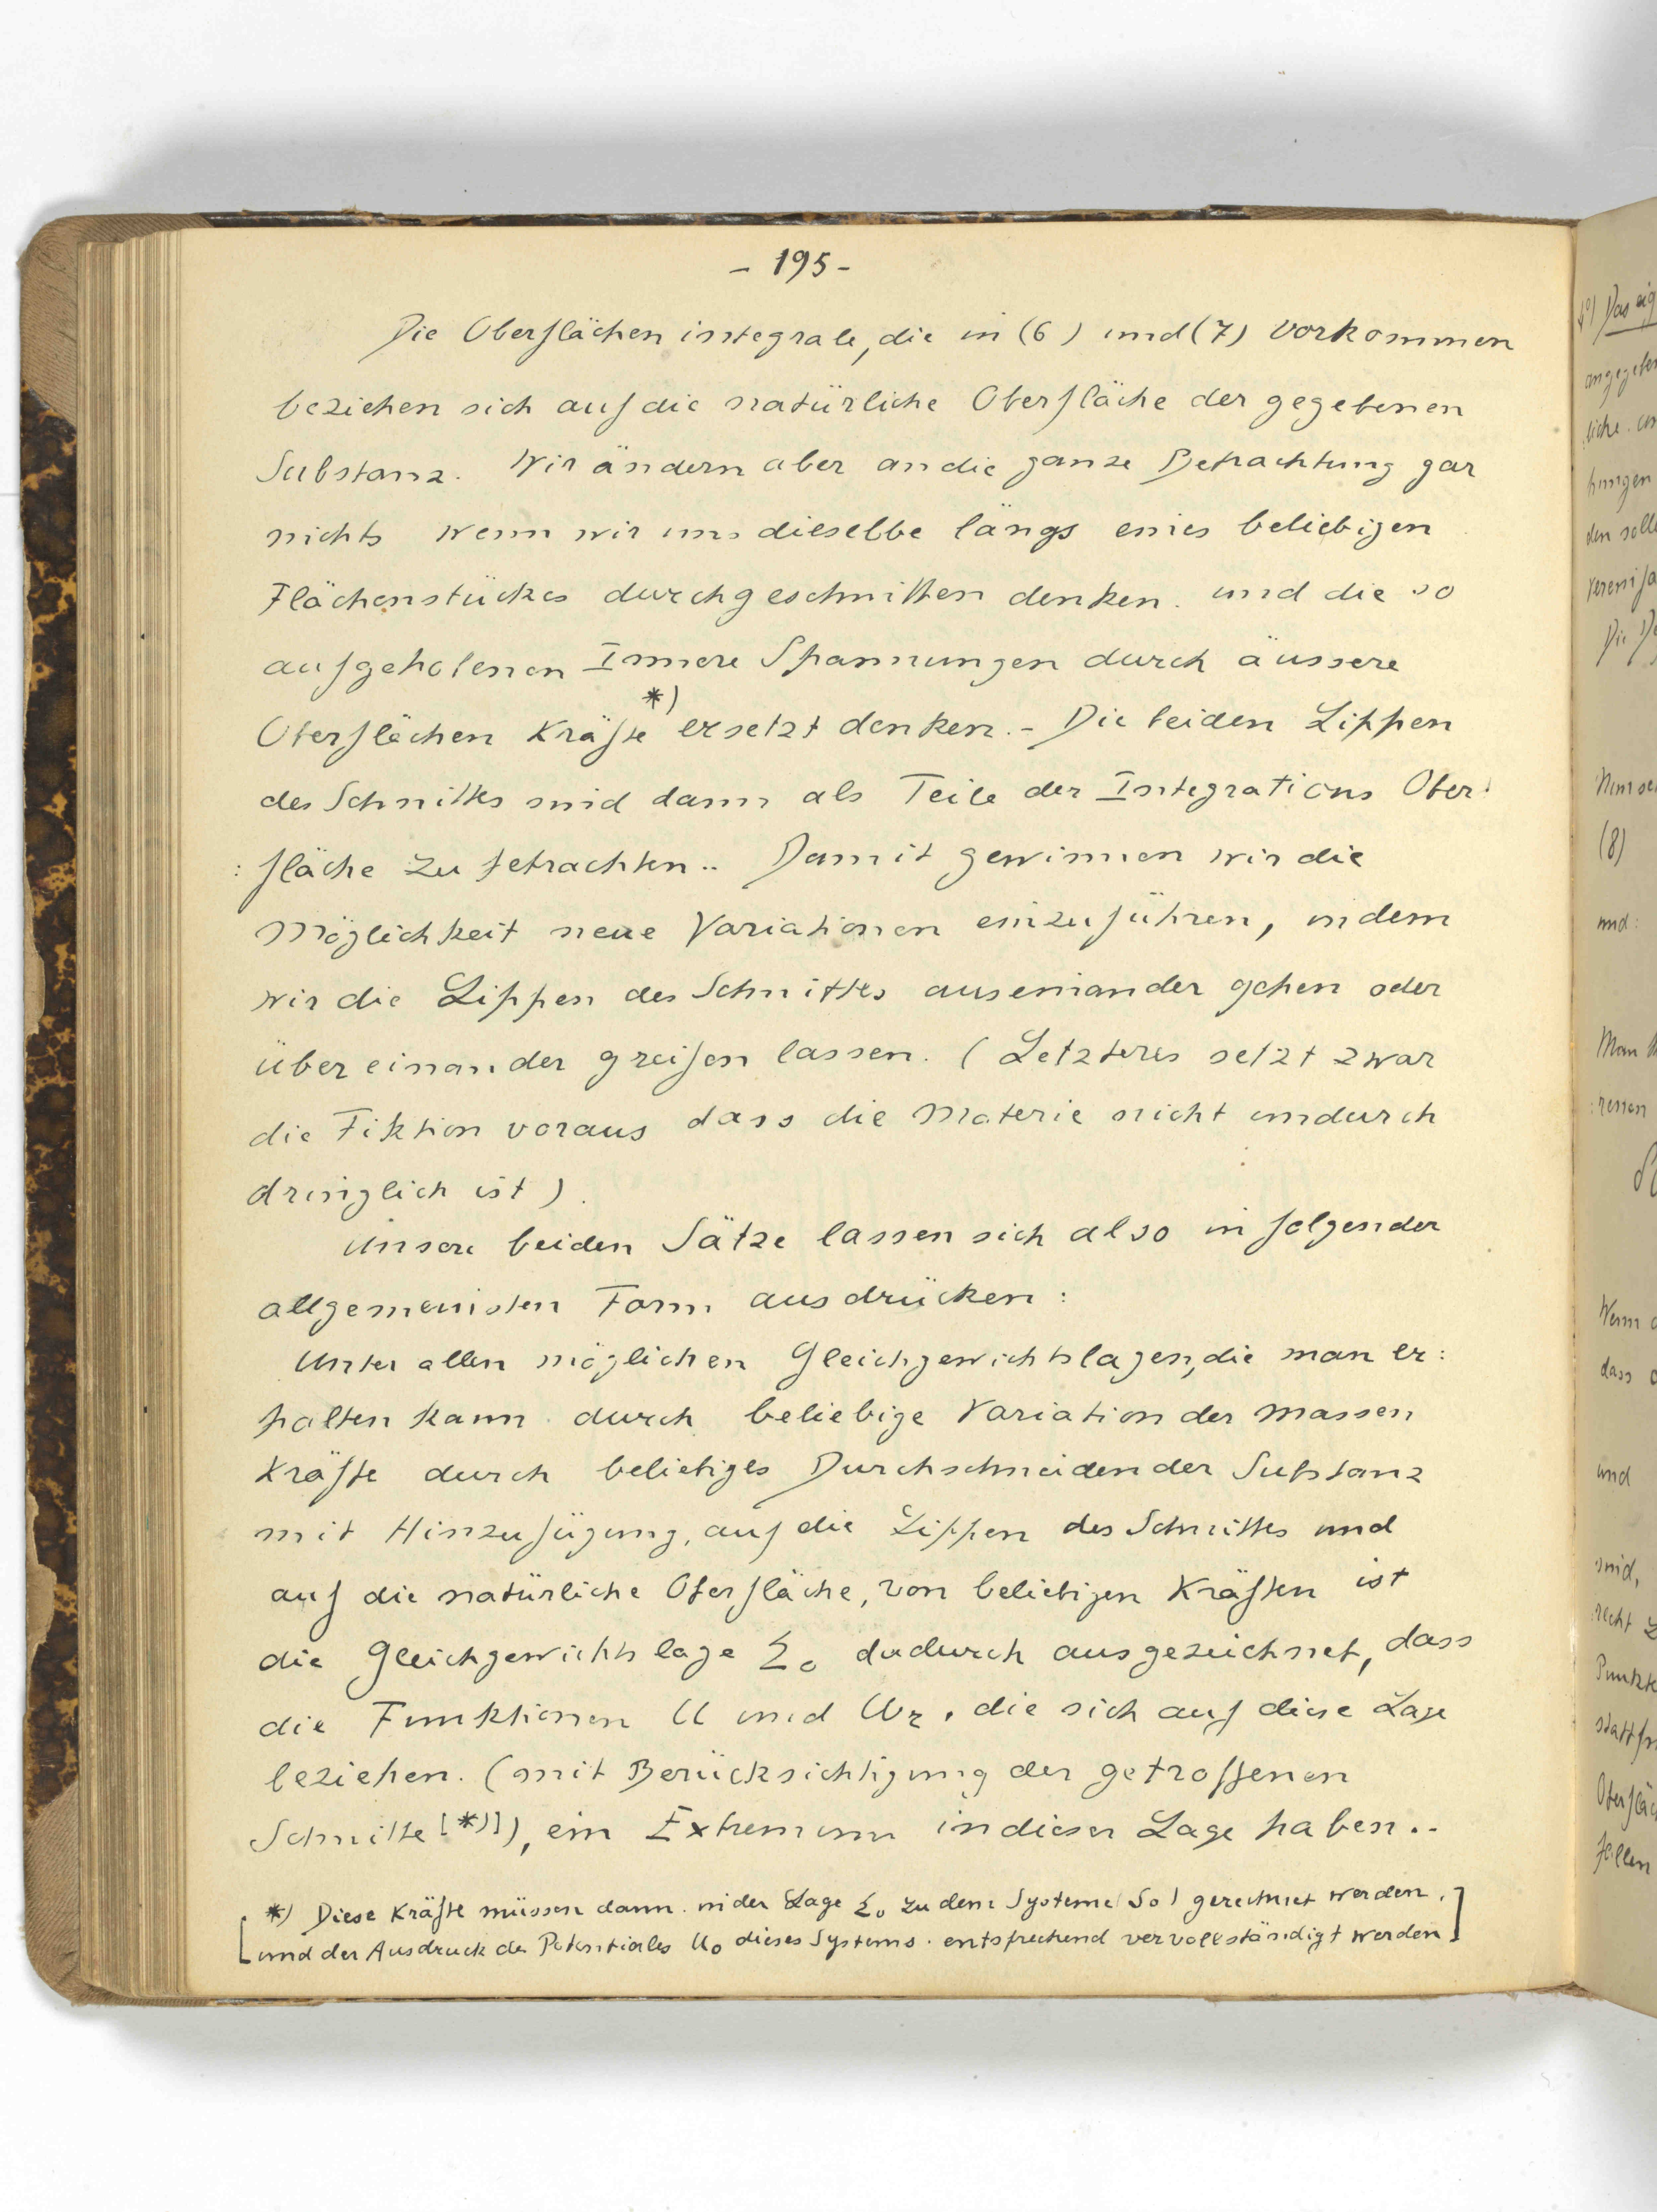 - 195 -
Die Oberflächen integrale, die in (6) und (7) vorkommen
beziehen sich auf die natürliche Oberfläche der gegebenen
Substanz. Wir ändern aber an die ganze Betrachtung gar
nichts wenn wir uns dieselbe längs eines beliebigen
Flächenstückes durchgeschnitten denken. und die so
aufgehobenen Innere Spannungen durch äussere
Oberflächen Kräfte *) ersetzt denken. - Die beiden Lippen
des Schnittes sind dann als Teile der Integrations Ober:
: fläche zu betrachten.. Damit gewinnen wir die
Möglichkeit neue Variationen einzuführen, indem
wir die Lippen des Schnittes auseinander gehen oder
über einander greifen lassen. (Letzteres setzt zwar
die Fiktion voraus dass die Materie nicht undurch
dringlich ist).
Unsere beiden Sätze lassen sich also in folgender
allgemeinsten Form ausdrücken:
Unter allen möglichen Gleichgewichtslagen, die man er:
halten kann durch beliebige Variation der Massen
Kräfte durch beliebiges Durchschneiden der Substanz
mit Hinzufügung, auf die Lippen des Schnittes und
auf die natürliche Oberfläche, von beliebigen Kräften ist
die Gleichgewichtslage Σ₀ dadurch ausgezeichnet, dass
die Funktionen U und die sich auf diese Lage
beziehen. (mit Berücksichtigung der getroffenen
Schnitte [*)]), ein Extremum in dieser Lage haben..
*) Diese Kräfte müssen dann in der Lage Σ₀ zu dem Systeme (S₀) gerechnet werden.
[und der Ausdruck des Potentiales U₀ dieses Systems. entsprechend vervollständigt werden]
(8)
und:
Wenn
dass
und
sind,